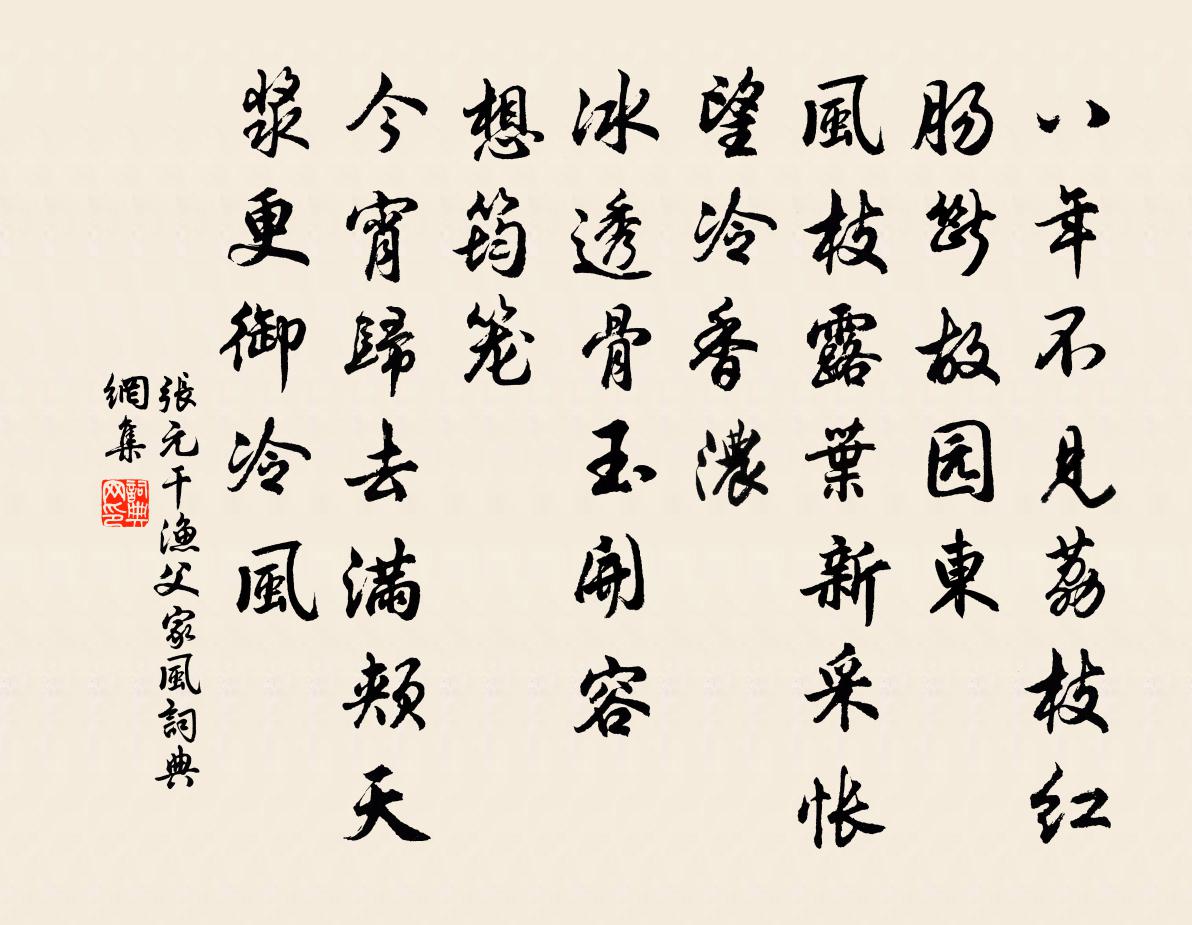 八年不見荔枝红
肠斷故园東
風枝露葉新采悵
望冷香濃
冰透骨玉開容
想筠笼
今宵歸去滿頰天
漿更御冷風
張元干漁父家風詞典
網集
詞典網印